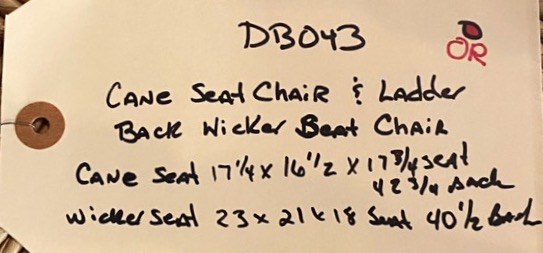 DB043
OR
CANE Seat CHAIR & LADDER
BACK Wicker Beat CHAIR
CANE Seat 17 1/4 x 16 1/2 x 17 3/4 Seat
42 3/4 BACK
Wicker Seat 23 x 21 x 18 Seat 40 1/2 BACK